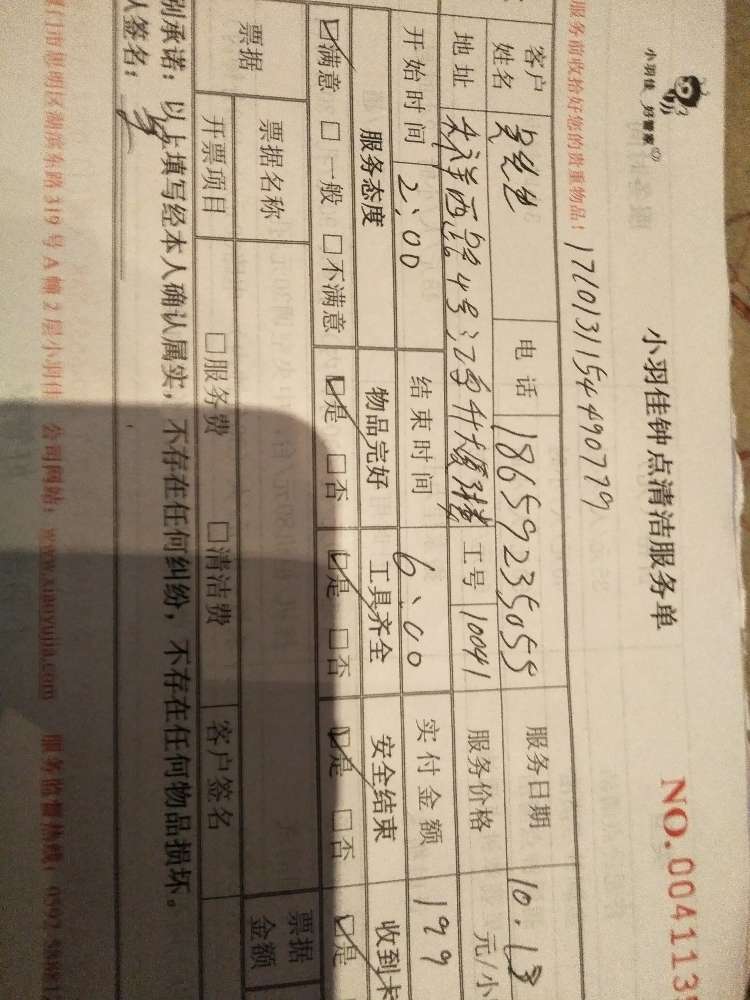 小羽佳 好管家
小羽佳钟点清洁服务单
NO.004113
服务前收拾好您的贵重物品！
171013115449077９
客户姓名 吴先生 电话 18659235055 服务日期 10.13
地址 西路4号 工号 10041 服务价格 元/小
开始时间 2:00 结束时间 6:00 实付金额 199
服务态度 物品完好 工具齐全 安全结束 收到卡
☑满意 □一般 □不满意 ☑是 □否 ☑是 □否 ☑是 □否 ☑是
票据 票据名称 票据金额
开票项目 □服务费 □清洁费 客户签名
别承诺：以上填写经本人确认属实，不存在任何纠纷，不存在任何物品损坏。
人签名：
门市思明区湖滨东路319号A幢2层小羽佳 公司网站：www.xiaoyujia.com 服务监督热线：0592-5868